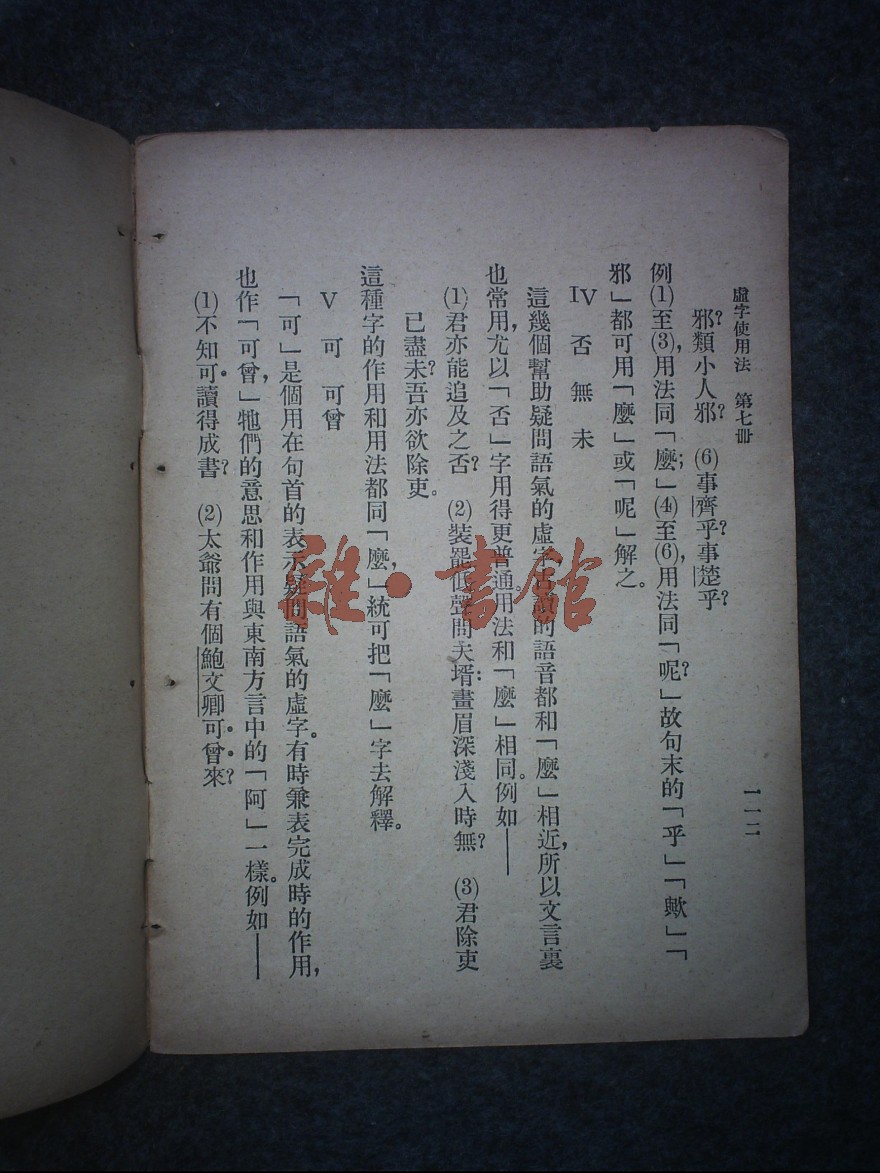 虛字使用法　第七冊
一一二
邪？類小人邪？　(6)事齊乎？事楚乎？
例(1)至(3)，用法同「麼；」(4)至(6)，用法同「呢？」故句末的「乎」「歟」「
邪」都可用「麼」或「呢」解之。
IV　否　無　未
這幾個幫助疑問語氣的虛字的語音都和「麼」相近，所以文言裏
也常用，尤以「否」字用得更普通。用法和「麼」相同。例如——
(1)君亦能追及之否？　(2)裝罷低聲問夫壻：畫眉深淺入時無？　(3)君除吏
已盡未？吾亦欲除吏。
這種字的作用和用法都同「麼，」統可把「麼」字去解釋。
V　可　可曾
「可」是個用在句首的表示疑問語氣的虛字。有時兼表完成時的作用，
也作「可曾，」牠們的意思和作用與東南方言中的「阿」一樣。例如——
(1)不知可讀得成書？　(2)太爺問有個鮑文卿可曾來？
雜·書館